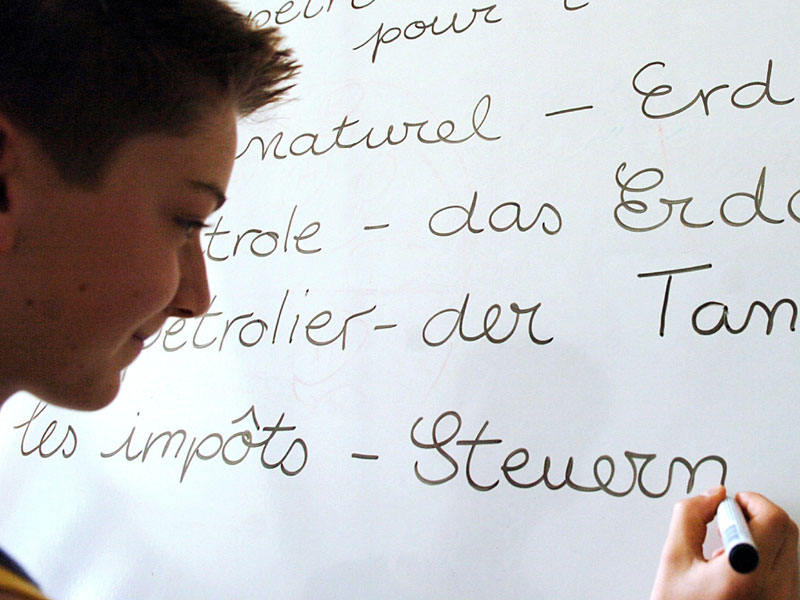 pour
naturel - Erd
trole - das Erdö
pétrolier - der Tan
les impôts - Steuern